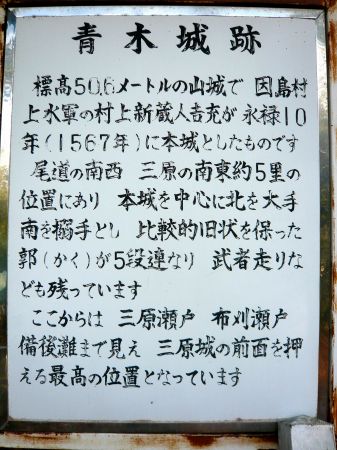 青木城跡
標高50.6メートルの山城で 因島村
上水軍の村上新蔵人吉充が 永禄10
年(1567年)に本城としたものです
尾道の南西 三原の南東約5里の
位置にあり 本城を中心に北を大手
南を搦手とし 比較的旧状を保った
郭(かく)が5段連なり 武者走りな
ども残っています
ここからは 三原瀬戸 布刈瀬戸
備後灘まで見え 三原城の前面を押
える最高の位置となっています